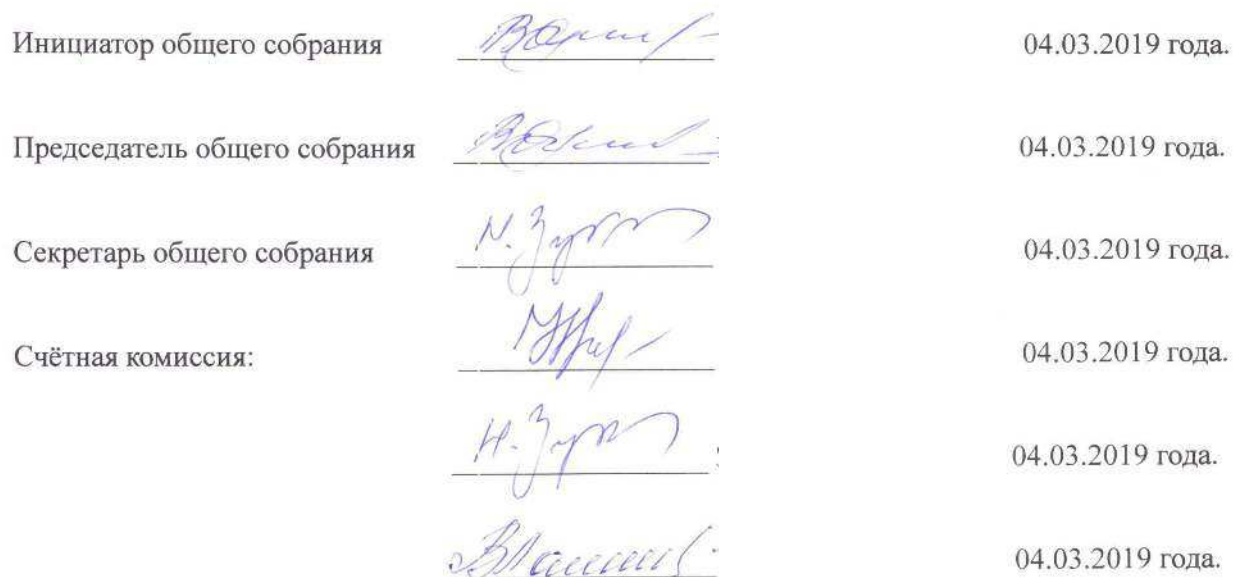 Инициатор общего собрания 04.03.2019 года.
Председатель общего собрания 04.03.2019 года.
Секретарь общего собрания 04.03.2019 года.
Счётная комиссия: 04.03.2019 года.
04.03.2019 года.
04.03.2019 года.